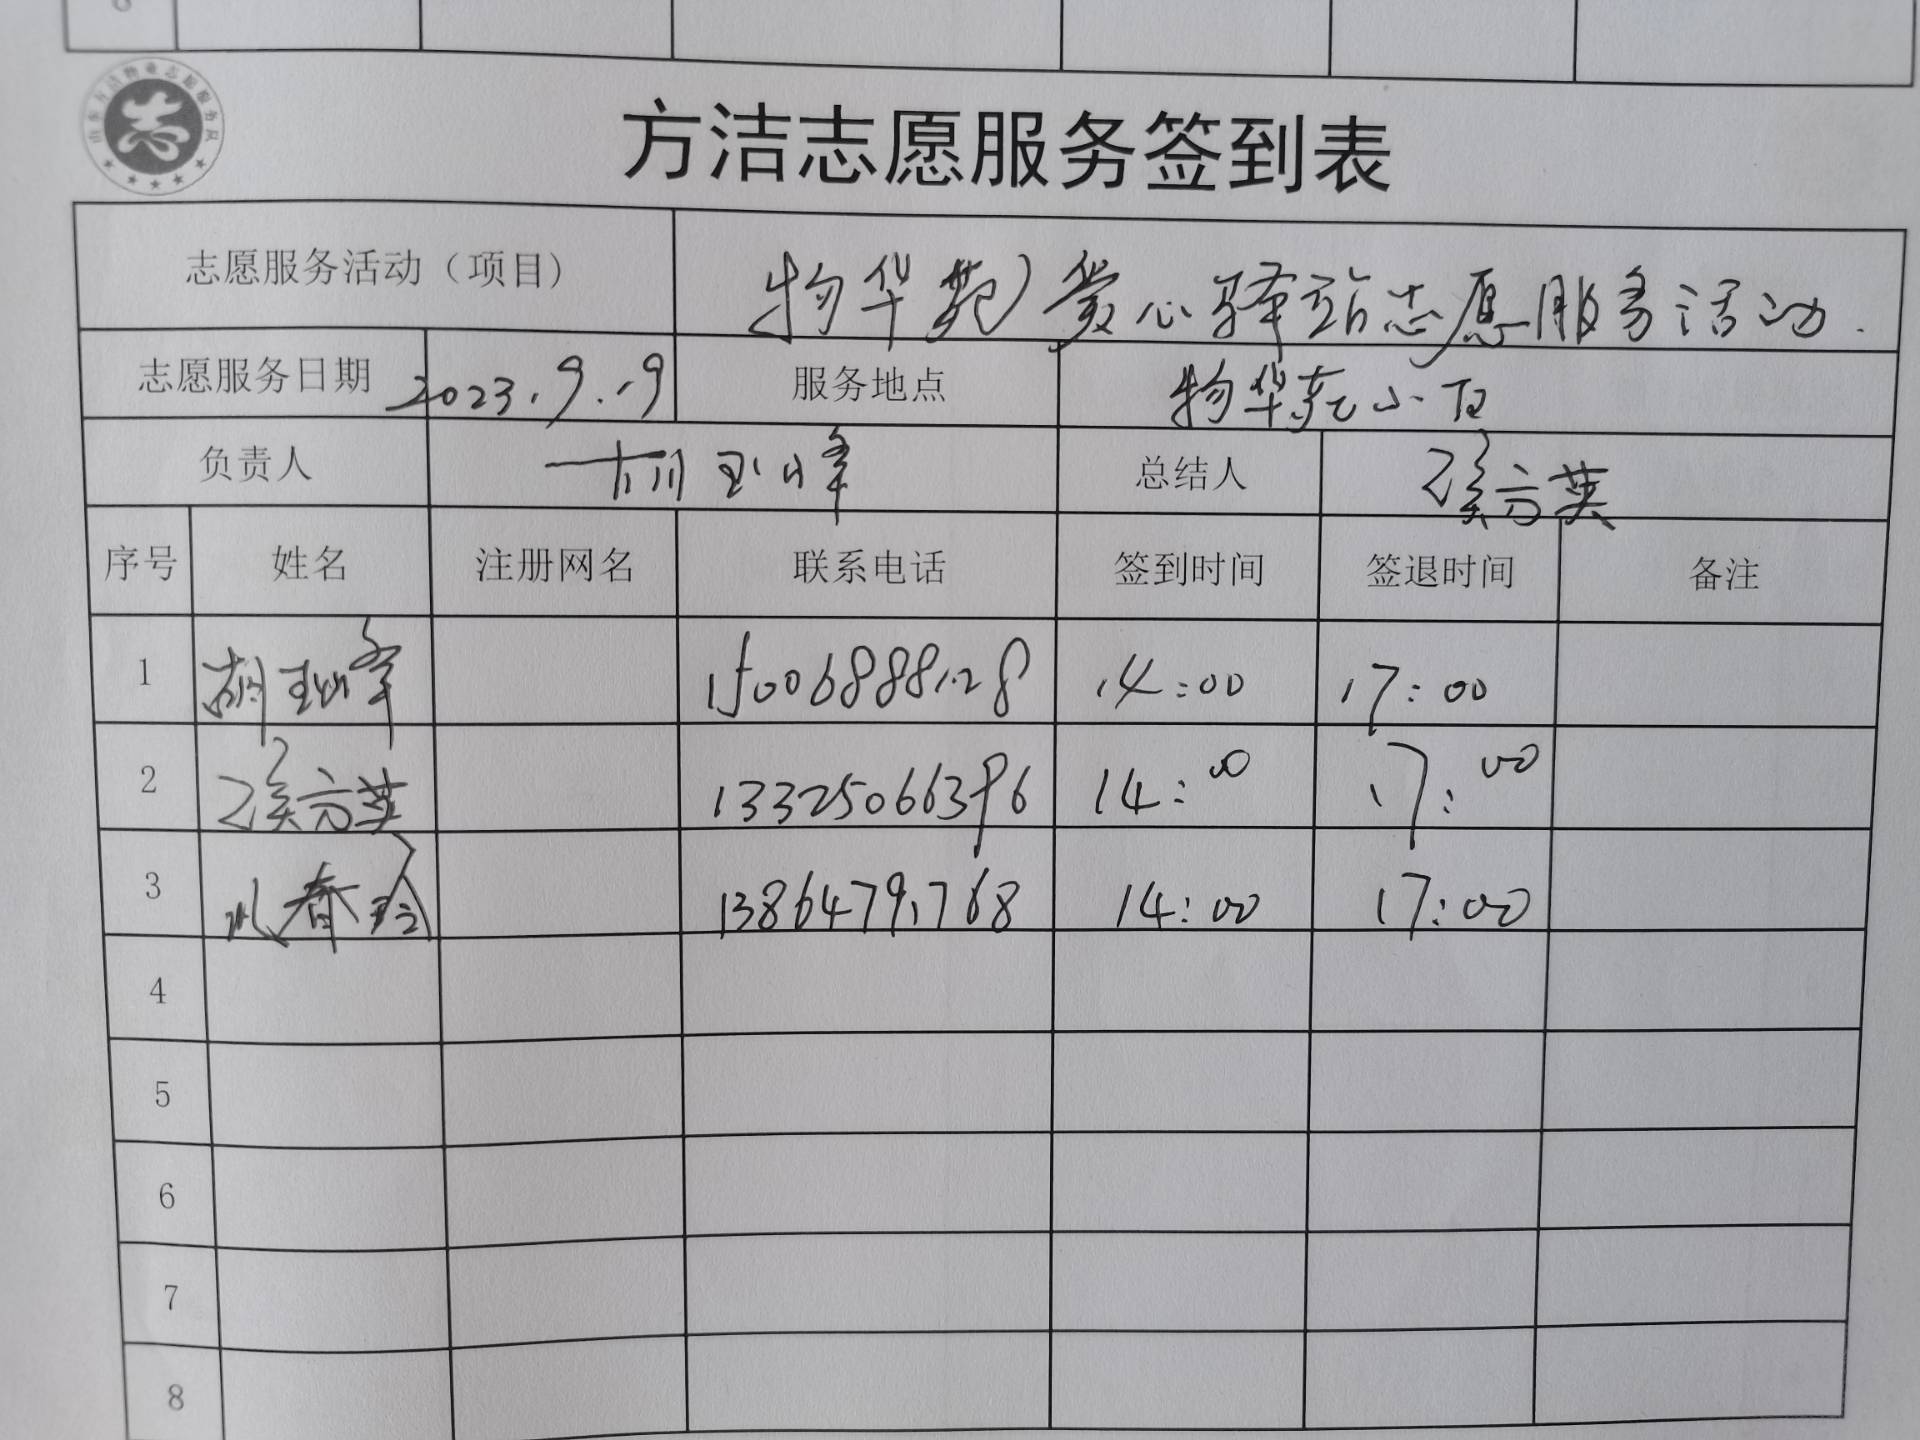 山东方洁物业志愿服务队
志
方洁志愿服务签到表
志愿服务活动（项目） 物华苑爱心驿站志愿服务活动.
志愿服务日期 2023.9.19 服务地点 物华苑小区
负责人 胡玉峰 总结人 英
序号 姓名 注册网名 联系电话 签到时间 签退时间 备注
1 胡 峰 15006888128 14:00 17:00
2 英 13325066396 14:00 17:00
3 春玲 13864791768 14:00 17:00
4
5
6
7
8